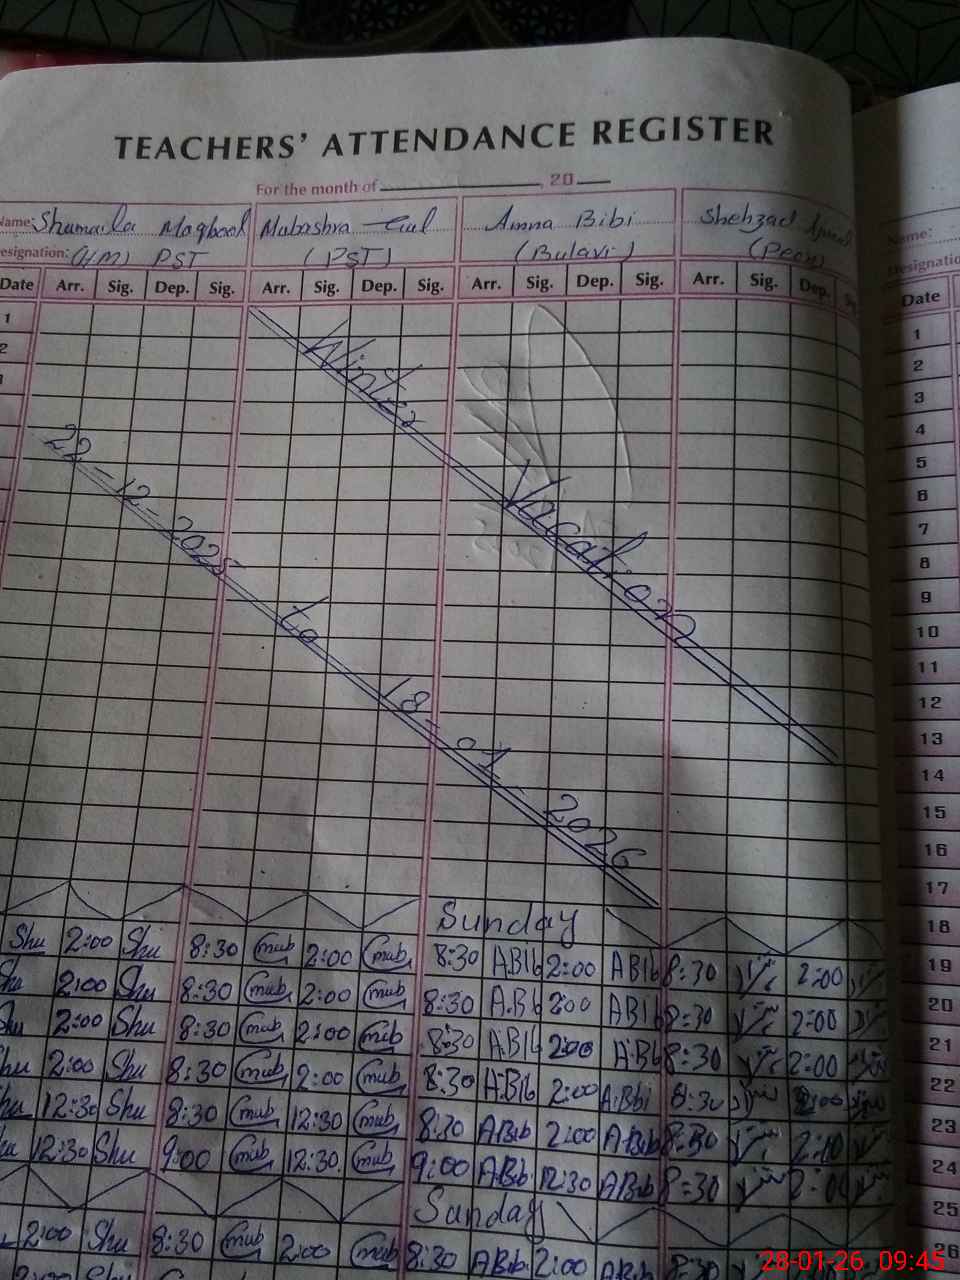 TEACHERS' ATTENDANCE REGISTER
For the month of , 20
Name: Shumaila Maqbool Mubashra Gul Amna Bibi Shehzad
Designation: (H/M) PST (PST) (Bulavi) (Peon)
Name:
Designatio
Date Arr. Sig. Dep. Sig. Arr. Sig. Dep. Sig. Arr. Sig. Dep. Sig. Arr. Sig. Dep.
Date
1
2
Winter Vacation
22-12-2025 to 18-01-2026
1
2
3
4
5
6
7
8
9
10
11
12
13
14
15
16
17
Sunday 18
Shu 2:00 Shu 8:30 mub 2:00 mub 8:30 A.Bib 2:00 ABib 8:30 2:00 19
Shu 2:00 Shu 8:30 mub 2:00 mub 8:30 A.Bib 2:00 ABib 8:30 2:00 20
Shu 2:00 Shu 8:30 mub 2:00 mub 8:30 A.Bib 2:00 A.Bib 8:30 2:00 21
Shu 2:00 Shu 8:30 mub 2:00 mub 8:30 A.Bib 2:00 A.Bibi 8:30 2:00 22
Shu 12:30 Shu 8:30 mub 12:30 mub 8:30 A.Bib 2:00 A.Bib 8:30 2:00 23
Shu 12:30 Shu 9:00 mub 12:30 mub 9:00 A.Bib 12:30 A.Bib 8:30 2:00 24
Sunday 25
2:00 Shu 8:30 mub 2:00 mub 8:30 A.Bib 2:00 A.Bib 8:30 26
28-01-26 09:45